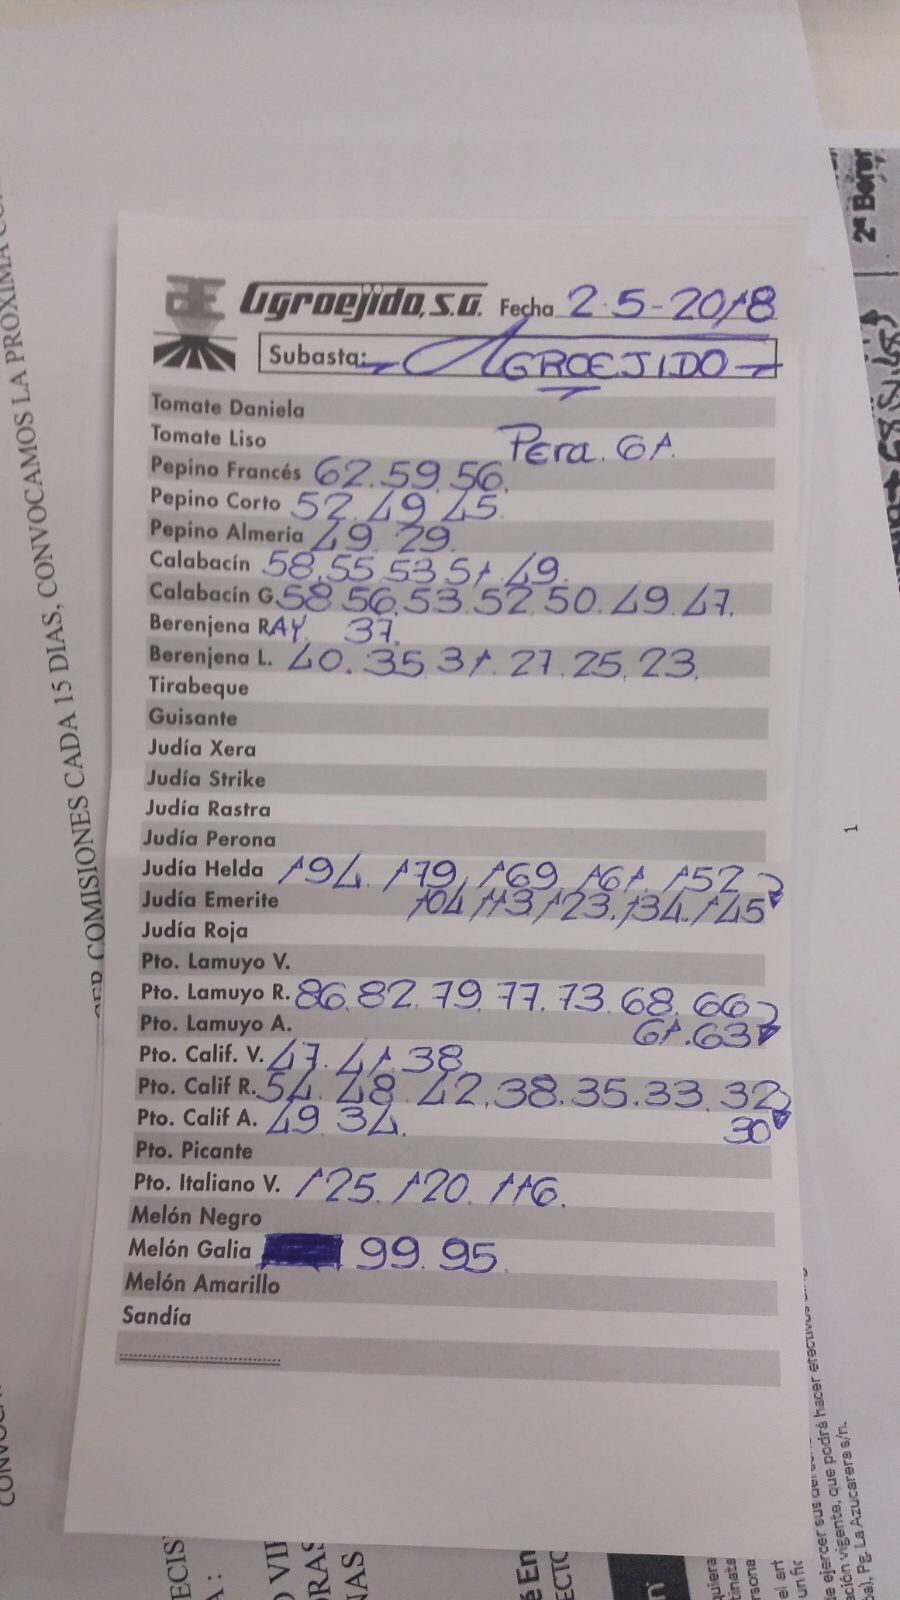 Agroejido, S.A. Fecha 2-5-2018
Subasta: AGROEJIDO
Tomate Daniela
Tomate Liso Pera. 61.
Pepino Francés 62.59.56.
Pepino Corto 52.49.45.
Pepino Almería 49.29.
Calabacín 58.55.53.51.49.
Calabacín G. 58.56.53.52.50.49.47.
Berenjena RAY. 37.
Berenjena L. 40.35.31.27.25.23.
Tirabeque
Guisante
Judía Xera
Judía Strike
Judía Rastra
Judía Perona
Judía Helda 194.179.169.161.152
Judía Emerite 104.113.123.134.145
Judía Roja
Pto. Lamuyo V.
Pto. Lamuyo R. 86.82.79.77.73.68.66
Pto. Lamuyo A. 61.63
Pto. Calif. V. 47.41.38
Pto. Calif R. 54.48.42.38.35.33.32
Pto. Calif A. 49.34. 30
Pto. Picante
Pto. Italiano V. 125.120.116.
Melón Negro
Melón Galia 99.95.
Melón Amarillo
Sandía
COMISIONES CADA 15 DIAS, CONVOCAMOS LA PROXIMA
2ª Beren
1
ejercer sus
hacer efectivos
ación vigente, que podrá
Pg. La Azucarera s/n.